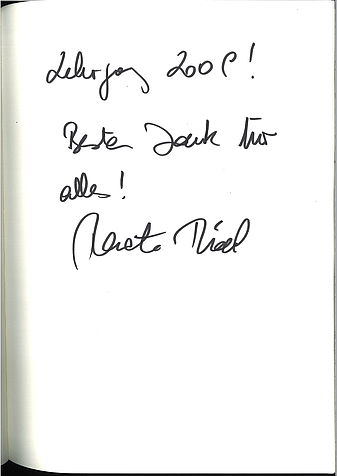 Lehrgang 2008!
Besten Dank für
alles!
Renate Riedl